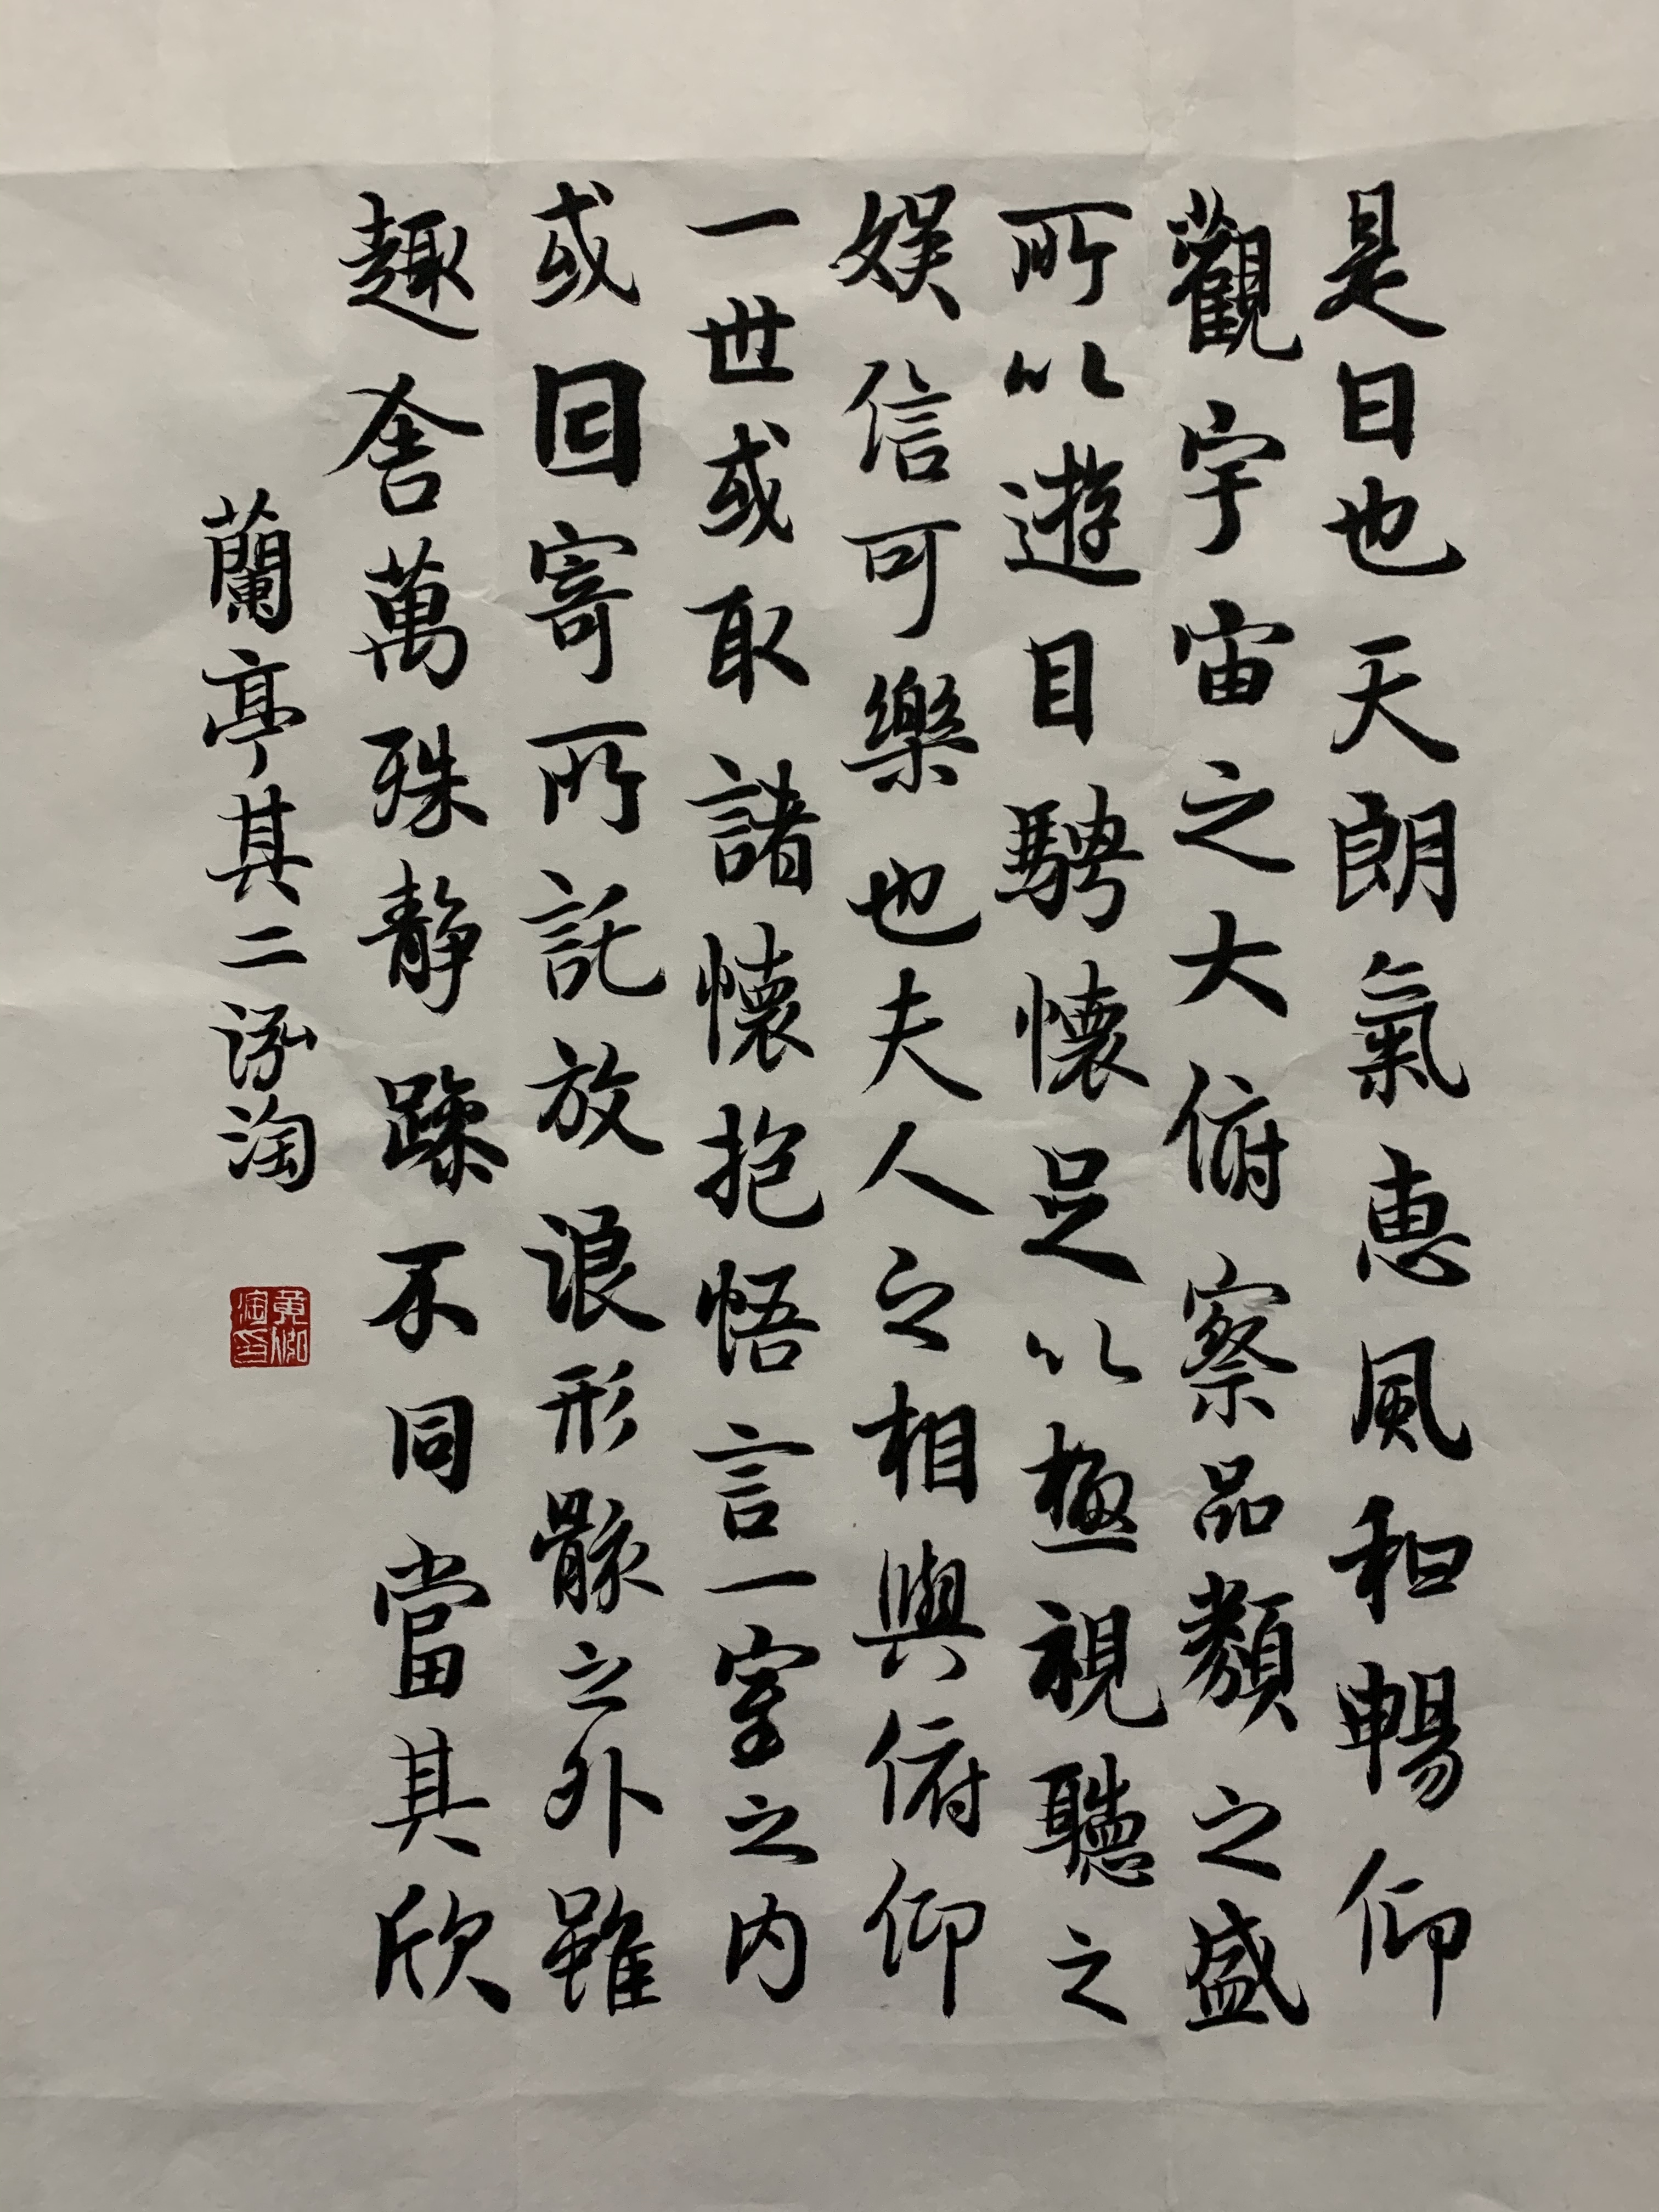 是日也天朗氣惠風和暢仰
觀宇宙之大俯察品類之盛
所以遊目騁懷足以極視聽之
娱信可樂也夫人之相與俯仰
一世或取諸懷抱悟言一室之内
或因寄所託放浪形骸之外雖
趣舍萬殊静躁不同當其欣
蘭亭其二泓淘
黄泓
淘印